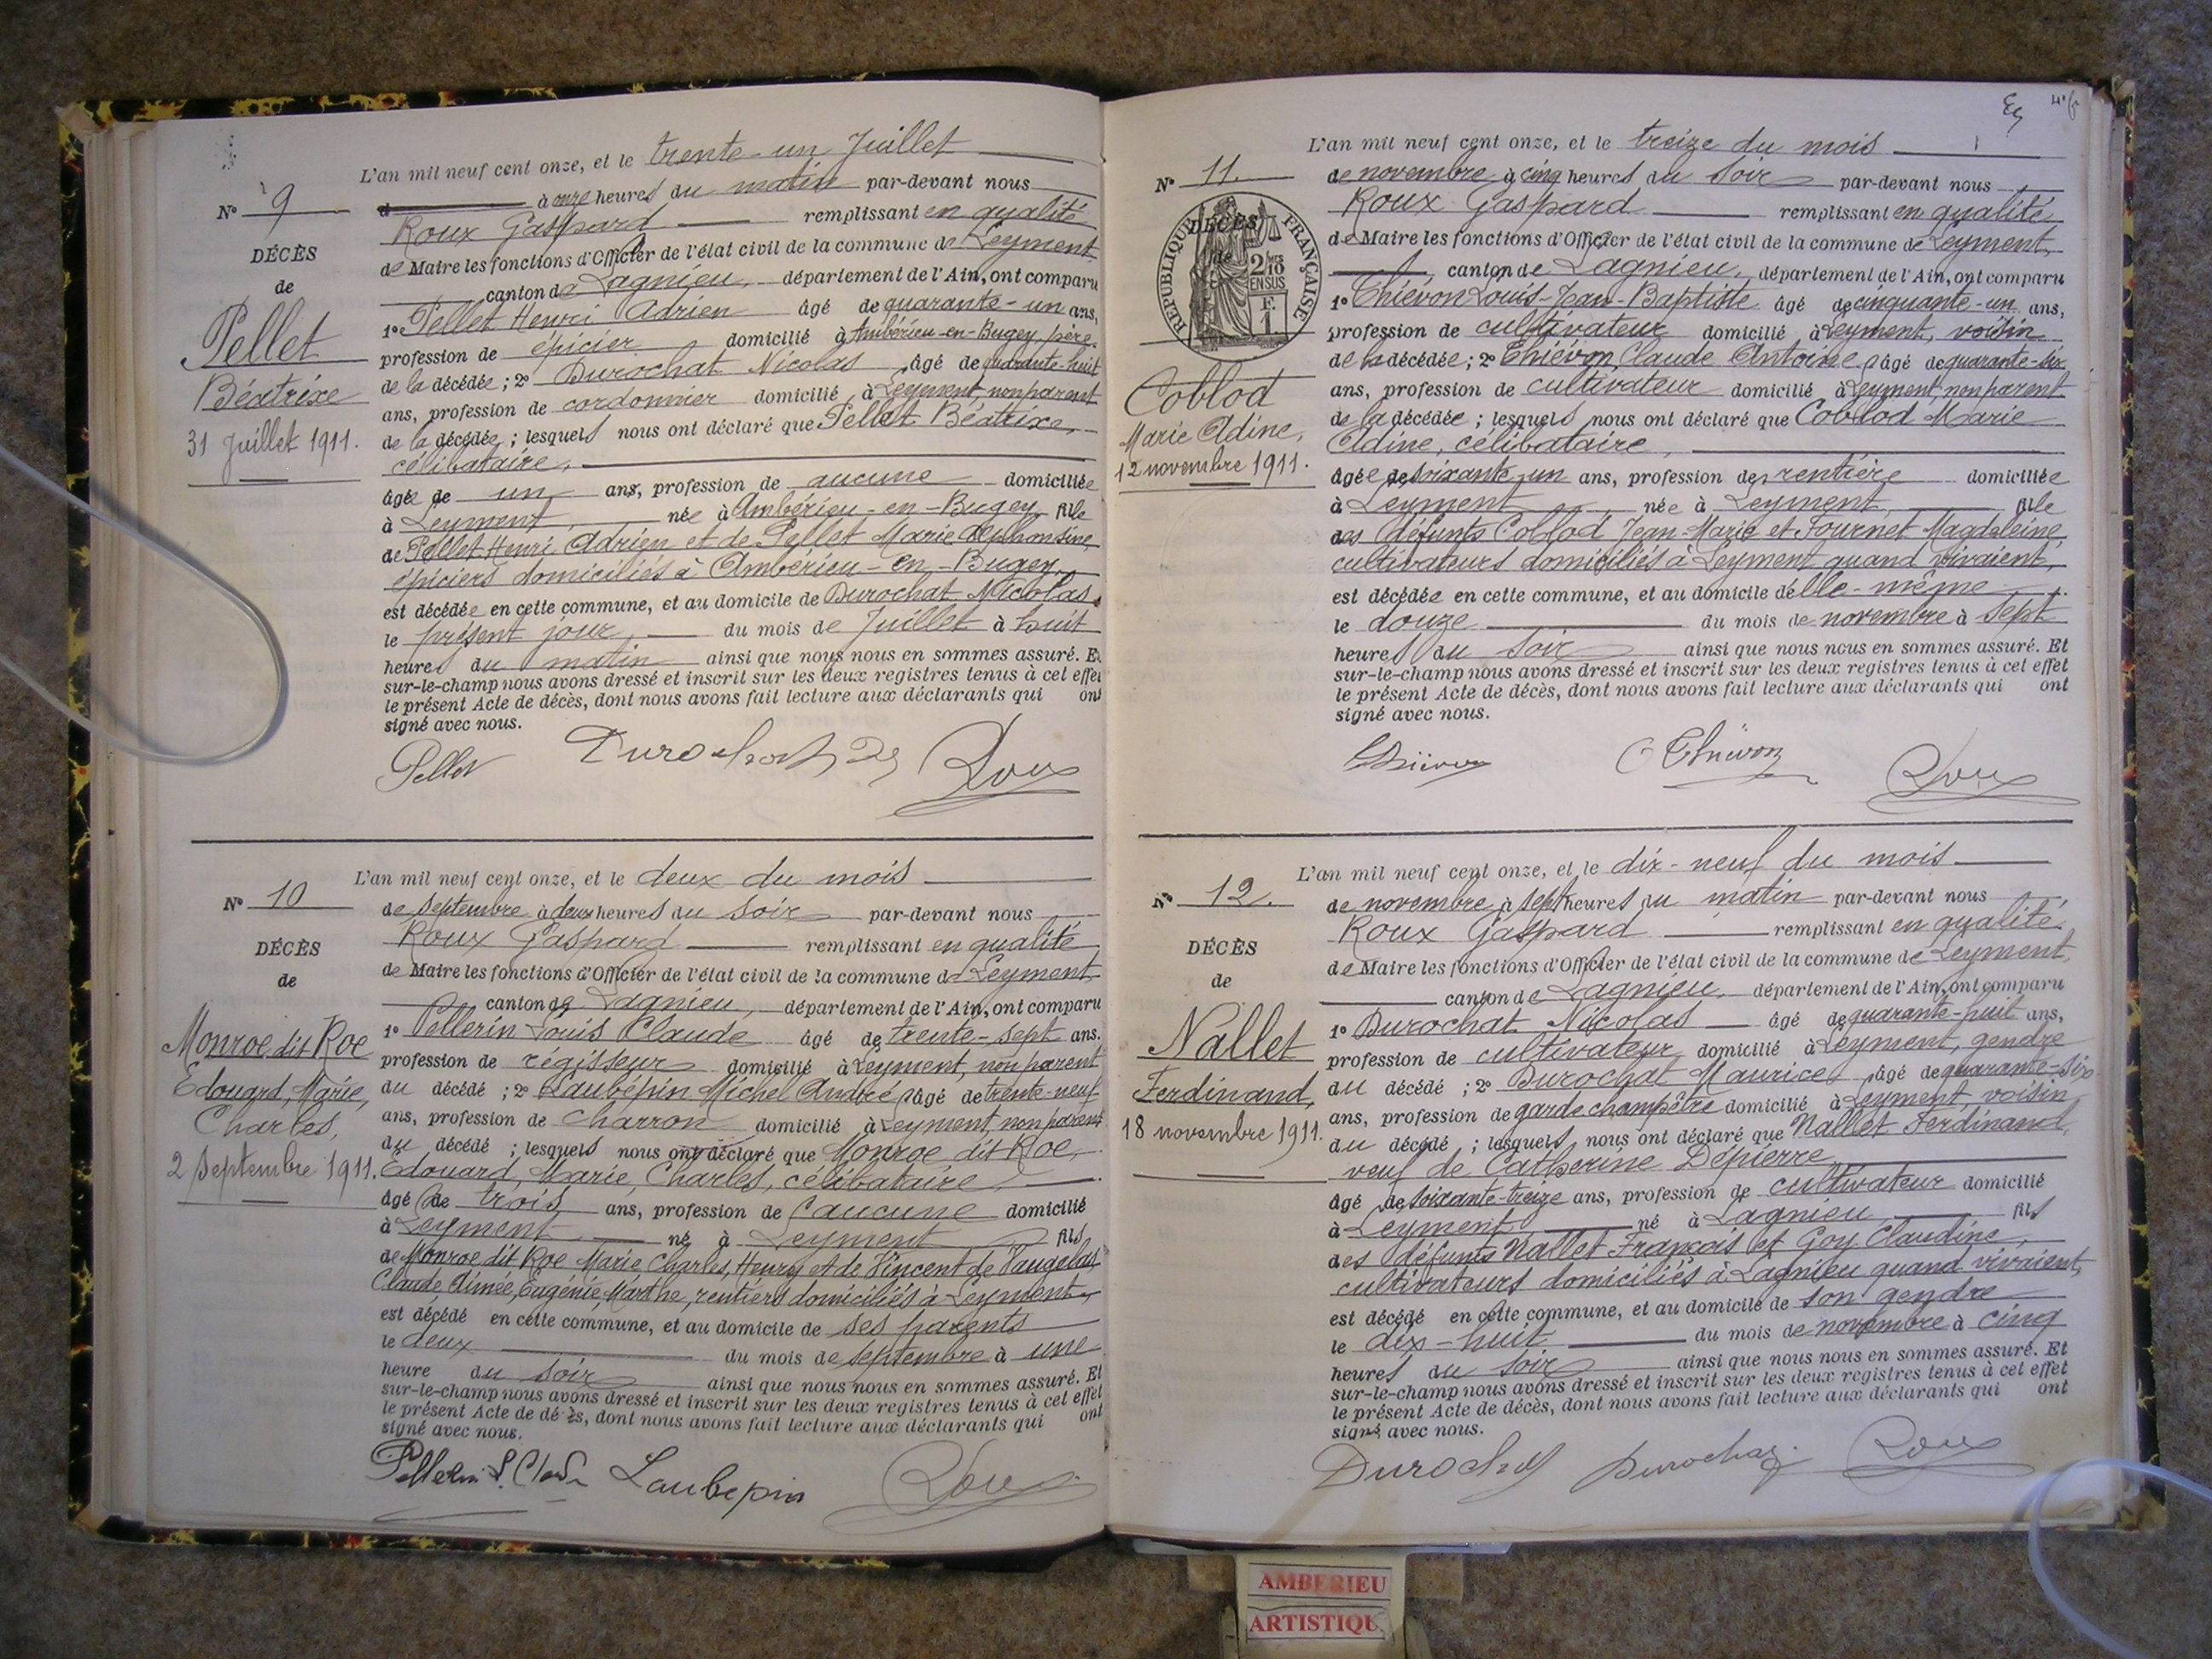 L'an mil neuf cent onze, et le trente-un Juillet
N° 9
à onze heures du matin par-devant nous
Roux Gaspard remplissant en qualité
de Maire les fonctions d'Officier de l'état civil de la commune de Leyment
canton de Lagnieu, département de l'Ain, ont comparu
1° Pellet Henri Adrien âgé de quarante-un ans,
profession de épicier domicilié à Ambérieu-en-Bugey, père
de la décédée ; 2° Durochat Nicolas âgé de quarante-huit
ans, profession de cordonnier domicilié à Leyment, non parent
de la décédée ; lesquels nous ont déclaré que Pellet Béatrixe,
célibataire,
âgée de un ans, profession de aucune domiciliée
à Leyment née à Ambérieu-en-Bugey fille
de Pellet Henri Adrien et de Pellet Marie Alphonsine,
épiciers domiciliés à Ambérieu-en-Bugey,
est décédée en cette commune, et au domicile de Durochat Nicolas,
le présent jour, du mois de Juillet à huit
heures du matin ainsi que nous nous en sommes assuré. Et
sur-le-champ nous avons dressé et inscrit sur les deux registres tenus à cet effet
le présent Acte de décès, dont nous avons fait lecture aux déclarants qui ont
signé avec nous.
DÉCÈS
de
Pellet
Béatrixe
31 Juillet 1911.
Pellet Durochat Roux
L'an mil neuf cent onze, et le deux du mois
N° 10
de septembre à deux heures du soir par-devant nous
Roux Gaspard remplissant en qualité
de Maire les fonctions d'Officier de l'état civil de la commune de Leyment
canton de Lagnieu, département de l'Ain, ont comparu
1° Pellerin Louis Claude âgé de trente-sept ans.
profession de régisseur domicilié à Leyment, non parent
du décédé ; 2° Laubépin Michel André, âgé de trente-neuf
ans, profession de charron domicilié à Leyment, non parent
du décédé ; lesquels nous ont déclaré que Monroe dit Roe,
Edouard, Marie, Charles, célibataire,
âgé de trois ans, profession de aucune domicilié
à Leyment né à Leyment fils
de Monroe dit Roe Marie Charles, Henry et de Vincent de Vaugelas
Claude, Aimée, Eugénie, Marthe, rentiers domiciliés à Leyment,
est décédé en cette commune, et au domicile de ses parents
le deux du mois de septembre à une
heure du soir ainsi que nous nous en sommes assuré. Et
sur-le-champ nous avons dressé et inscrit sur les deux registres tenus à cet effet
le présent Acte de décès, dont nous avons fait lecture aux déclarants qui ont
signé avec nous.
DÉCÈS
de
Monroe dit Roe
Edouard, Marie,
Charles,
2 Septembre 1911.
Pellerin L. Claude Laubepin Roux
L'an mil neuf cent onze, et le treize du mois
N° 11.
de novembre à cinq heures du soir par-devant nous
Roux Gaspard remplissant en qualité
de Maire les fonctions d'Officier de l'état civil de la commune de Leyment,
canton de Lagnieu, département de l'Ain, ont comparu
1° Thiévon Louis-Jean-Baptiste âgé de cinquante-un ans,
profession de cultivateur domicilié à Leyment, voisin
de la décédée ; 2° Thiévon Claude Antoine, âgé de quarante-six
ans, profession de cultivateur domicilié à Leyment, non parent
de la décédée ; lesquels nous ont déclaré que Coblod Marie
Adine, célibataire,
âgée de soixante-un ans, profession de rentière domiciliée
à Leyment, née à Leyment, fille
des défunts Coblod Jean-Marie et Fournet Magdeleine,
cultivateurs domiciliés à Leyment quand vivaient,
est décédée en cette commune, et au domicile d'elle-même
le douze du mois de novembre à sept
heures du soir ainsi que nous nous en sommes assuré. Et
sur-le-champ nous avons dressé et inscrit sur les deux registres tenus à cet effet
le présent Acte de décès, dont nous avons fait lecture aux déclarants qui ont
signé avec nous.
DÉCÈS
de
RÉPUBLIQUE FRANÇAISE
2/10 EN SUS
F. 1
Coblod
Marie Adine,
12 novembre 1911.
Thiévon C Thiévon Roux
L'an mil neuf cent onze, et le dix-neuf du mois
N° 12.
de novembre à sept heures du matin par-devant nous
Roux Gaspard remplissant en qualité
de Maire les fonctions d'Officier de l'état civil de la commune de Leyment,
canton de Lagnieu, département de l'Ain, ont comparu
1° Durochat Nicolas âgé de quarante-huit ans,
profession de cultivateur domicilié à Leyment, gendre
du décédé ; 2° Durochat Maurice, âgé de quarante-six
ans, profession de garde champêtre domicilié à Leyment, voisin
du décédé ; lesquels nous ont déclaré que Nallet Ferdinand,
veuf de Catherine Dépierre,
âgé de soixante-treize ans, profession de cultivateur domicilié
à Leyment, né à Lagnieu fils
des défunts Nallet François et Goy Claudine,
cultivateurs domiciliés à Lagnieu quand vivaient,
est décédé en cette commune, et au domicile de son gendre
le dix-huit du mois de novembre à cinq
heures du soir ainsi que nous nous en sommes assuré. Et
sur-le-champ nous avons dressé et inscrit sur les deux registres tenus à cet effet
le présent Acte de décès, dont nous avons fait lecture aux déclarants qui ont
signé avec nous.
DÉCÈS
de
Nallet
Ferdinand,
18 novembre 1911.
Durochat Durochat Roux
AMBERIEU
ARTISTIQU